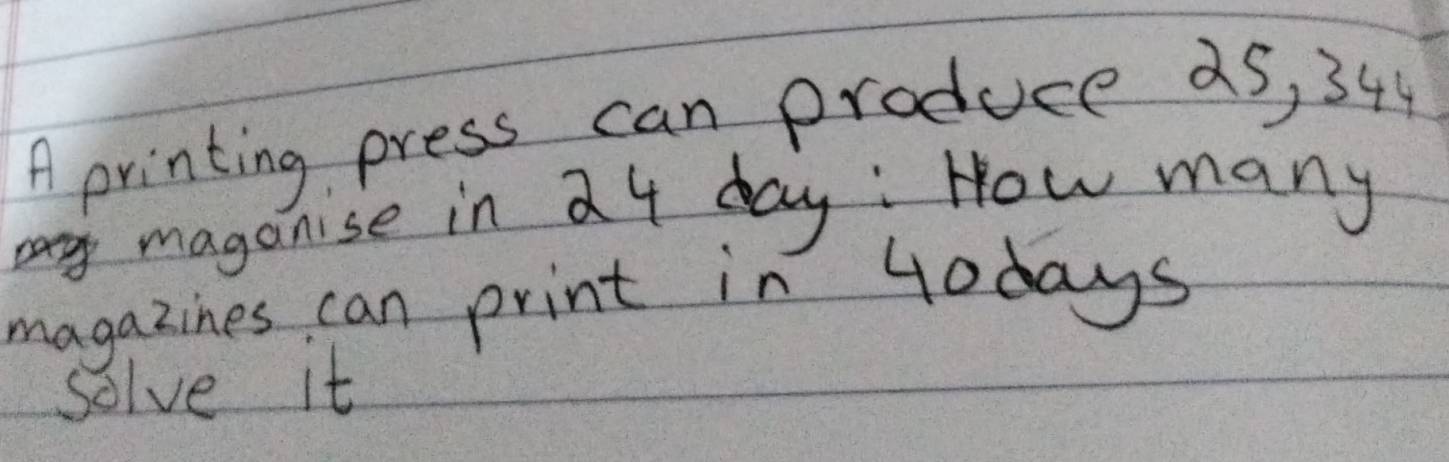 A printing press can produce 25,344
maganise in 24 day : How many
magazines can print in 40days
solve it